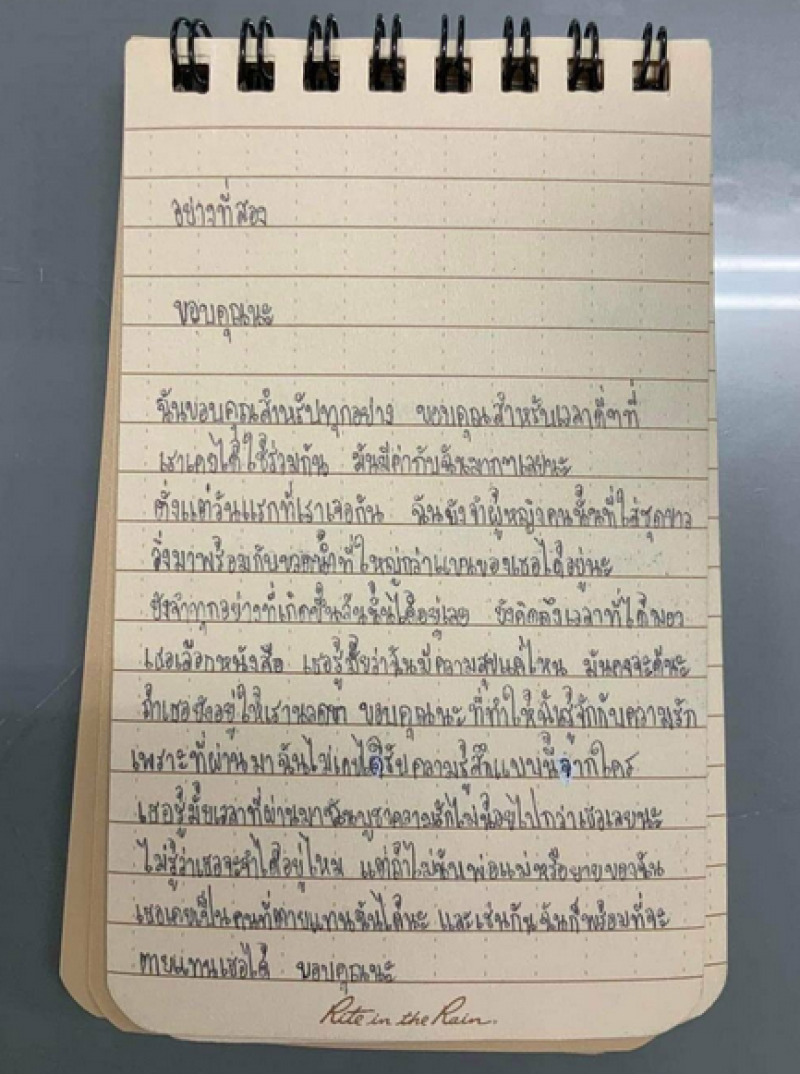 อย่างที่สอง
ขอบคุณนะ
ฉันขอบคุณสำหรับทุกอย่าง ขอบคุณสำหรับเวลาดีๆที่
เราเคยได้ใช้ร่วมกัน มันมีค่ากับฉันมากๆเลยนะ
ตั้งแต่วันแรกที่เราเจอกัน ฉันยังจำผู้หญิงคนนั้นที่ใส่ชุดขาว
วิ่งมาพร้อมกับขวดน้ำที่ใหญ่กว่าแขนของเธอได้อยู่นะ
ยังจำทุกอย่างที่เกิดขึ้นวันนั้นได้อยู่เลย ยังคิดถึงเวลาที่ได้มอง
เธอเลือกหนังสือ เธอรู้มั้ยว่าฉันมีความสุขแค่ไหน มันคงจะดีนะ
ถ้าเธอยังอยู่ให้เรา ขอบคุณนะ ที่ทำให้ฉันรู้จักกับความรัก
เพราะที่ผ่านมาฉันไม่เคยได้รับความรู้สึกแบบนี้จากใคร
เธอรู้มั้ยเวลาที่ผ่านมาฉันบูชาความรักไม่น้อยไปกว่าเธอเลยนะ
ไม่รู้ว่าเธอจะจำได้อยู่ไหม แต่ถ้าไม่นับพ่อแม่หรือยายของฉัน
เธอเคยเป็นคนที่ตายแทนฉันได้นะ และเช่นกัน ฉันก็พร้อมที่จะ
ตายแทนเธอได้ ขอบคุณนะ
Rite in the Rain.